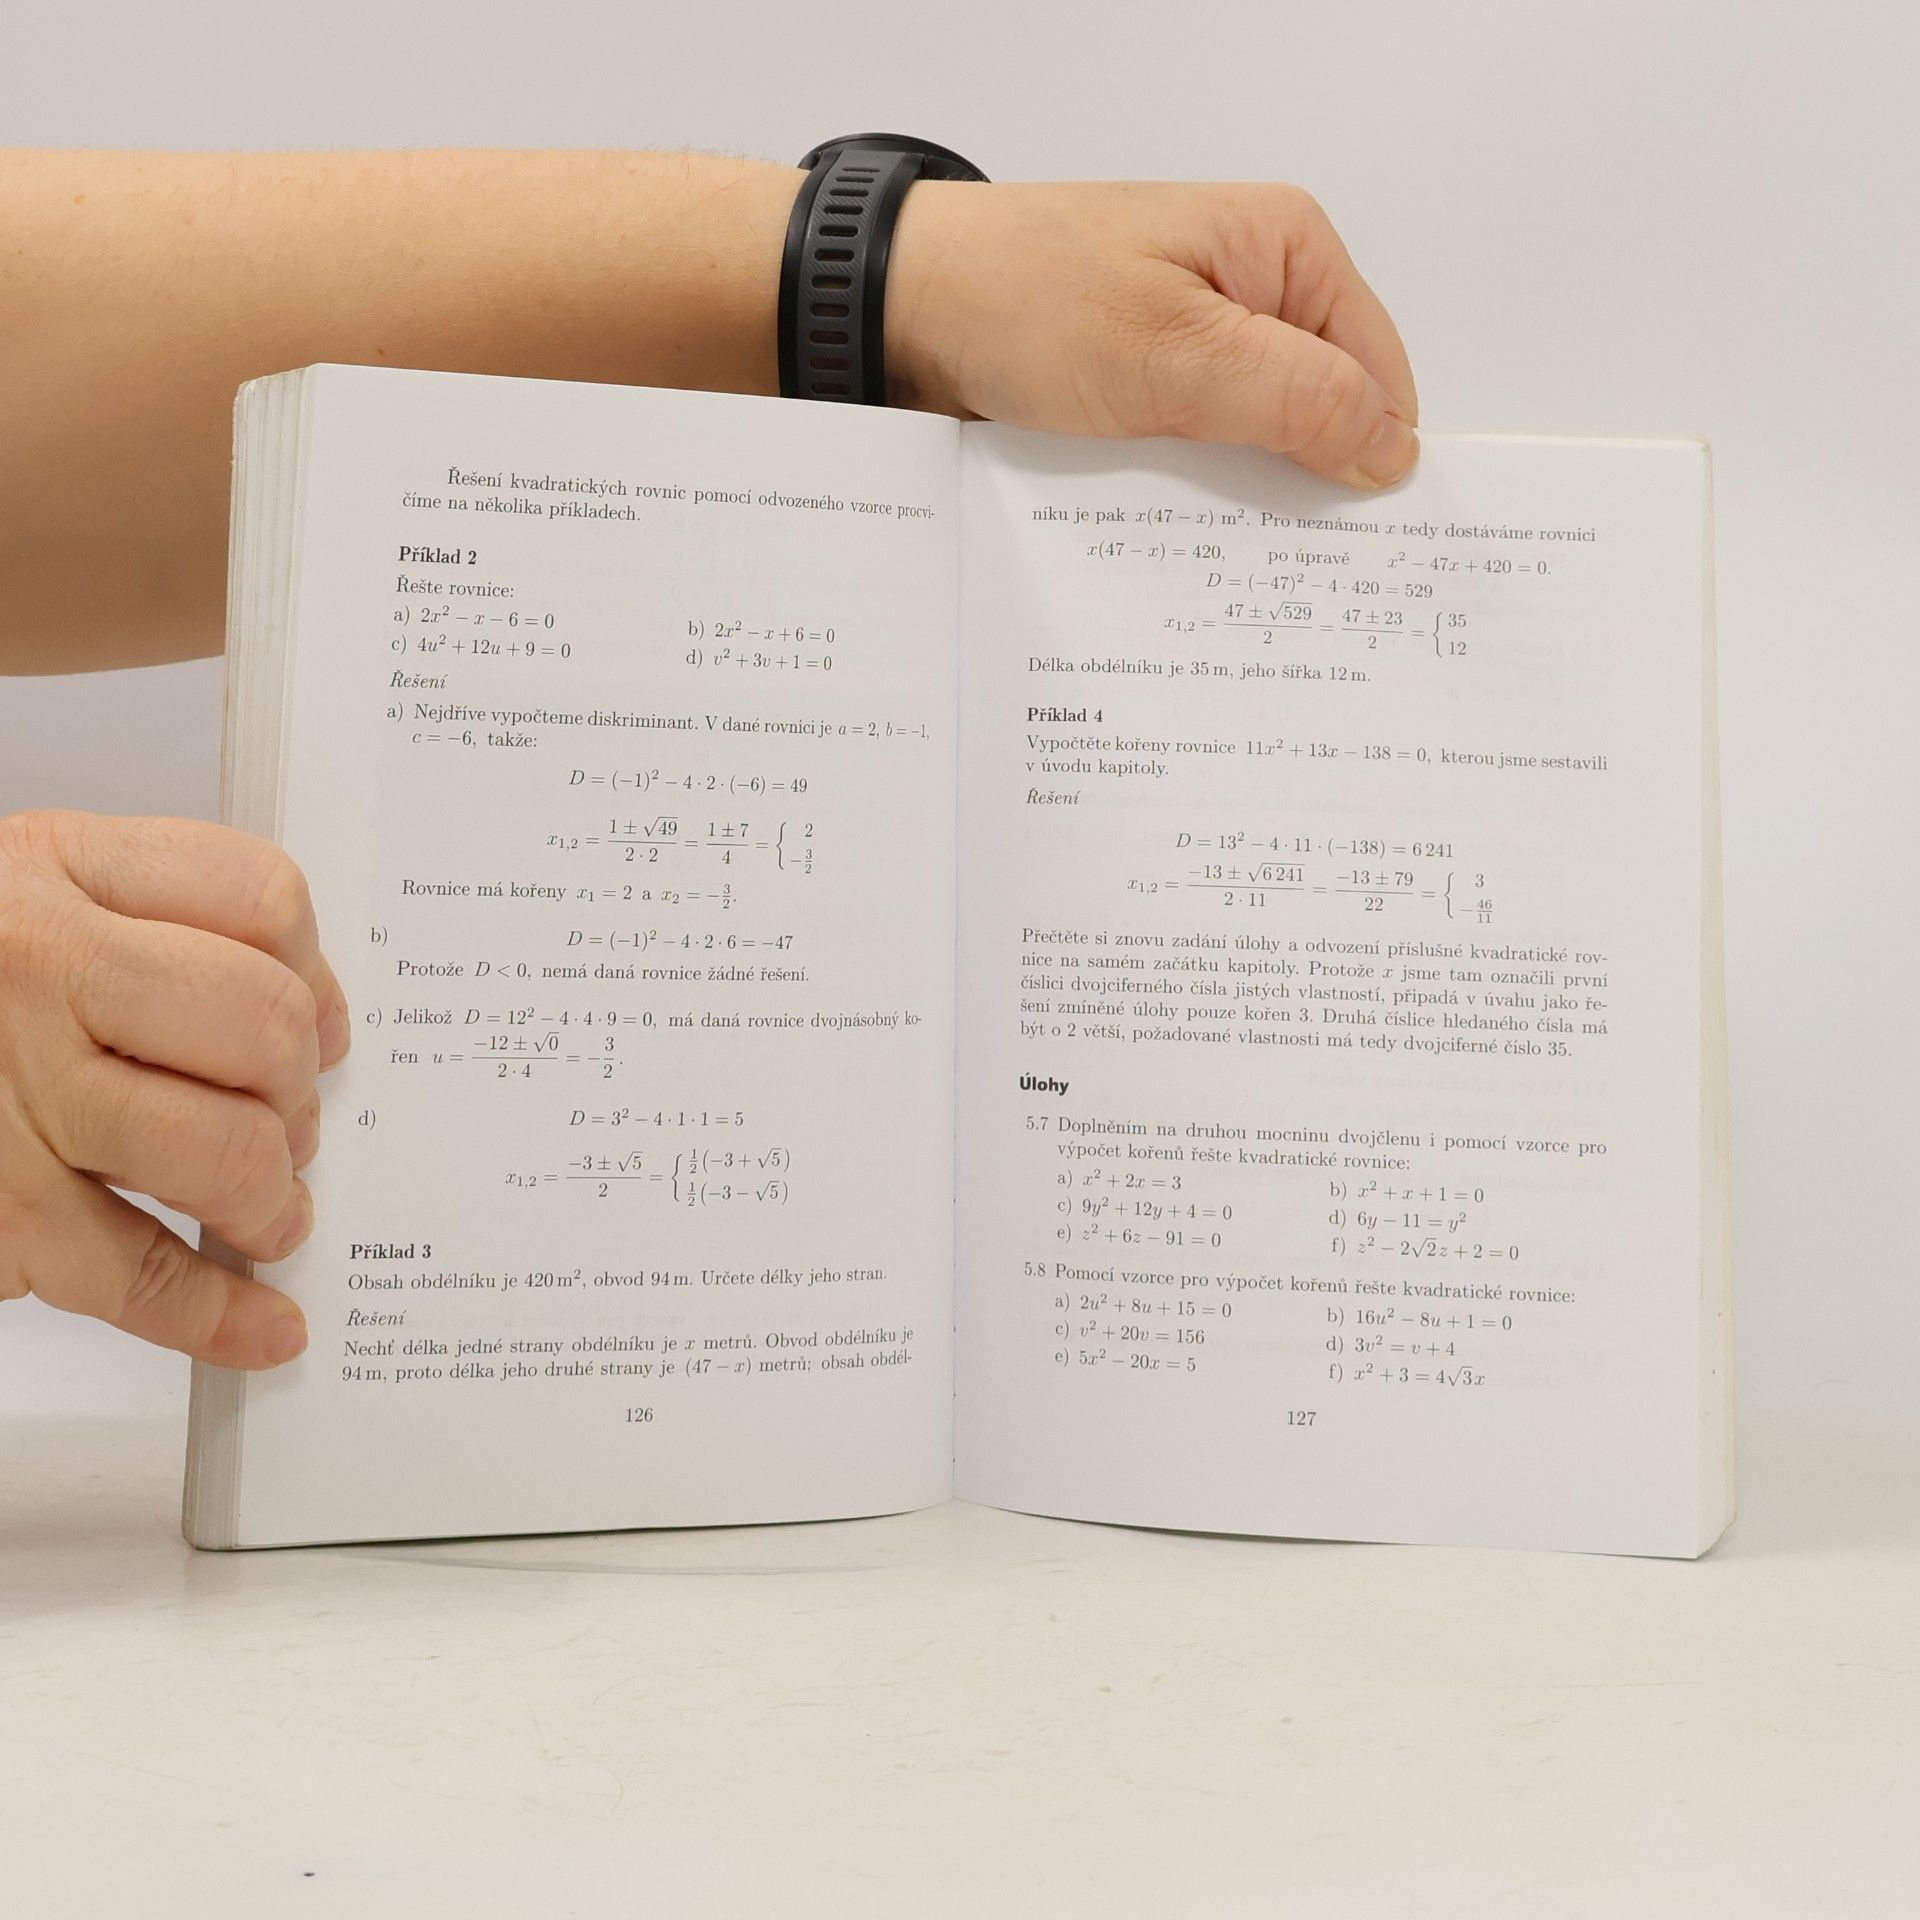 Řešení kvadratických rovnic pomocí odvozeného vzorce procvi-
číme na několika příkladech.
Příklad 2
Řešte rovnice:
a) 2x² − x − 6 = 0 b) 2x² − x + 6 = 0
c) 4u² + 12u + 9 = 0 d) v² + 3v + 1 = 0
Řešení
a) Nejdříve vypočteme diskriminant. V dané rovnici je a = 2, b = −1,
c = −6, takže:
D = (−1)² − 4 · 2 · (−6) = 49
x₁,₂ = (1 ± √49)/(2 · 2) = (1 ± 7)/4 = { 2 ; −3/2
Rovnice má kořeny x₁ = 2 a x₂ = −3/2.
b) D = (−1)² − 4 · 2 · 6 = −47
Protože D < 0, nemá daná rovnice žádné řešení.
c) Jelikož D = 12² − 4 · 4 · 9 = 0, má daná rovnice dvojnásobný ko-
řen u = (−12 ± √0)/(2 · 4) = −3/2.
d) D = 3² − 4 · 1 · 1 = 5
x₁,₂ = (−3 ± √5)/2 = { ½(−3 + √5) ; ½(−3 − √5)
Příklad 3
Obsah obdélníku je 420 m², obvod 94 m. Určete délky jeho stran.
Řešení
Nechť délka jedné strany obdélníku je x metrů. Obvod obdélníku je
94 m, proto délka jeho druhé strany je (47 − x) metrů; obsah obdél-
126
níku je pak x(47 − x) m². Pro neznámou x tedy dostáváme rovnici
x(47 − x) = 420, po úpravě x² − 47x + 420 = 0.
D = (−47)² − 4 · 420 = 529
x₁,₂ = (47 ± √529)/2 = (47 ± 23)/2 = { 35 ; 12
Délka obdélníku je 35 m, jeho šířka 12 m.
Příklad 4
Vypočtěte kořeny rovnice 11x² + 13x − 138 = 0, kterou jsme sestavili
v úvodu kapitoly.
Řešení
D = 13² − 4 · 11 · (−138) = 6 241
x₁,₂ = (−13 ± √6 241)/(2 · 11) = (−13 ± 79)/22 = { 3 ; −46/11
Přečtěte si znovu zadání úlohy a odvození příslušné kvadratické rov-
nice na samém začátku kapitoly. Protože x jsme tam označili první
číslici dvojciferného čísla jistých vlastností, připadá v úvahu jako ře-
šení zmíněné úlohy pouze kořen 3. Druhá číslice hledaného čísla má
být o 2 větší, požadované vlastnosti má tedy dvojciferné číslo 35.
Úlohy
5.7 Doplněním na druhou mocninu dvojčlenu i pomocí vzorce pro
výpočet kořenů řešte kvadratické rovnice:
a) x² + 2x = 3 b) x² + x + 1 = 0
c) 9y² + 12y + 4 = 0 d) 6y − 11 = y²
e) z² + 6z − 91 = 0 f) z² − 2√2z + 2 = 0
5.8 Pomocí vzorce pro výpočet kořenů řešte kvadratické rovnice:
a) 2u² + 8u + 15 = 0 b) 16u² − 8u + 1 = 0
c) v² + 20v = 156 d) 3v² = v + 4
e) 5x² − 20x = 5 f) x² + 3 = 4√3x
127